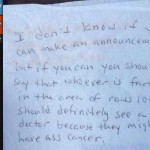 I don't know if y
can make an announcem
but if you can you shou
say that whoever is fart
in the area of rows 10
should definitely see a
doctor because they migh
have ass cancer.